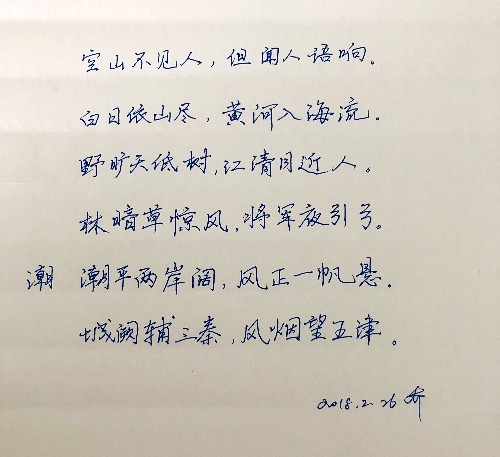 空山不见人，但闻人语响.
白日依山尽，黄河入海流.
野旷天低树，江清月近人。
林暗草惊风，将军夜引弓。
潮 潮平两岸阔，风正一帆悬.
城阙辅三秦，风烟望五津。
2018.2.26 乔